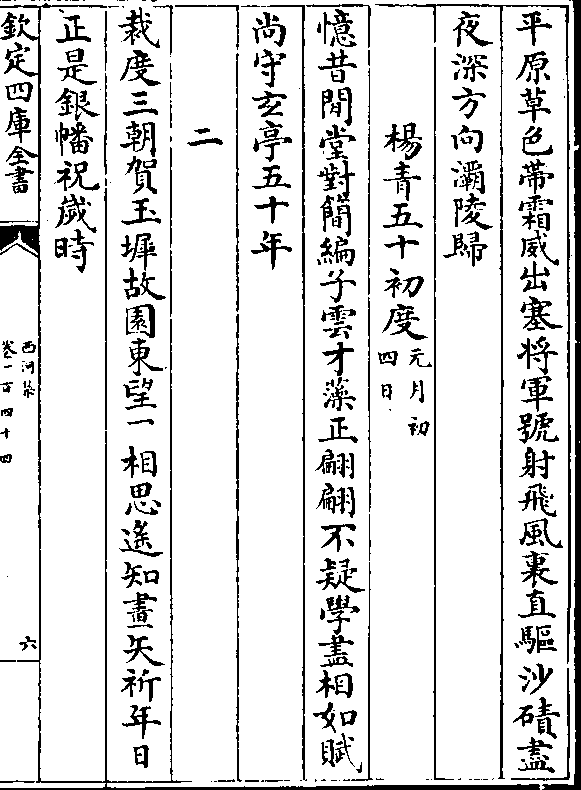 平原草色帶霜威出塞將軍號射飛風裏直驅沙磧盡
夜深方向灞陵歸
楊青五十初度元月初四日
憶昔閒堂對簡編子雲才藻正翩翩不疑學盡相如賦
尚守玄亭五十年
二
裁度三朝賀玉墀故園東望一相思遙知畫矢祈年日
正是銀幡祝歲時
欽定四庫全書
西河集
卷一百四十四
六